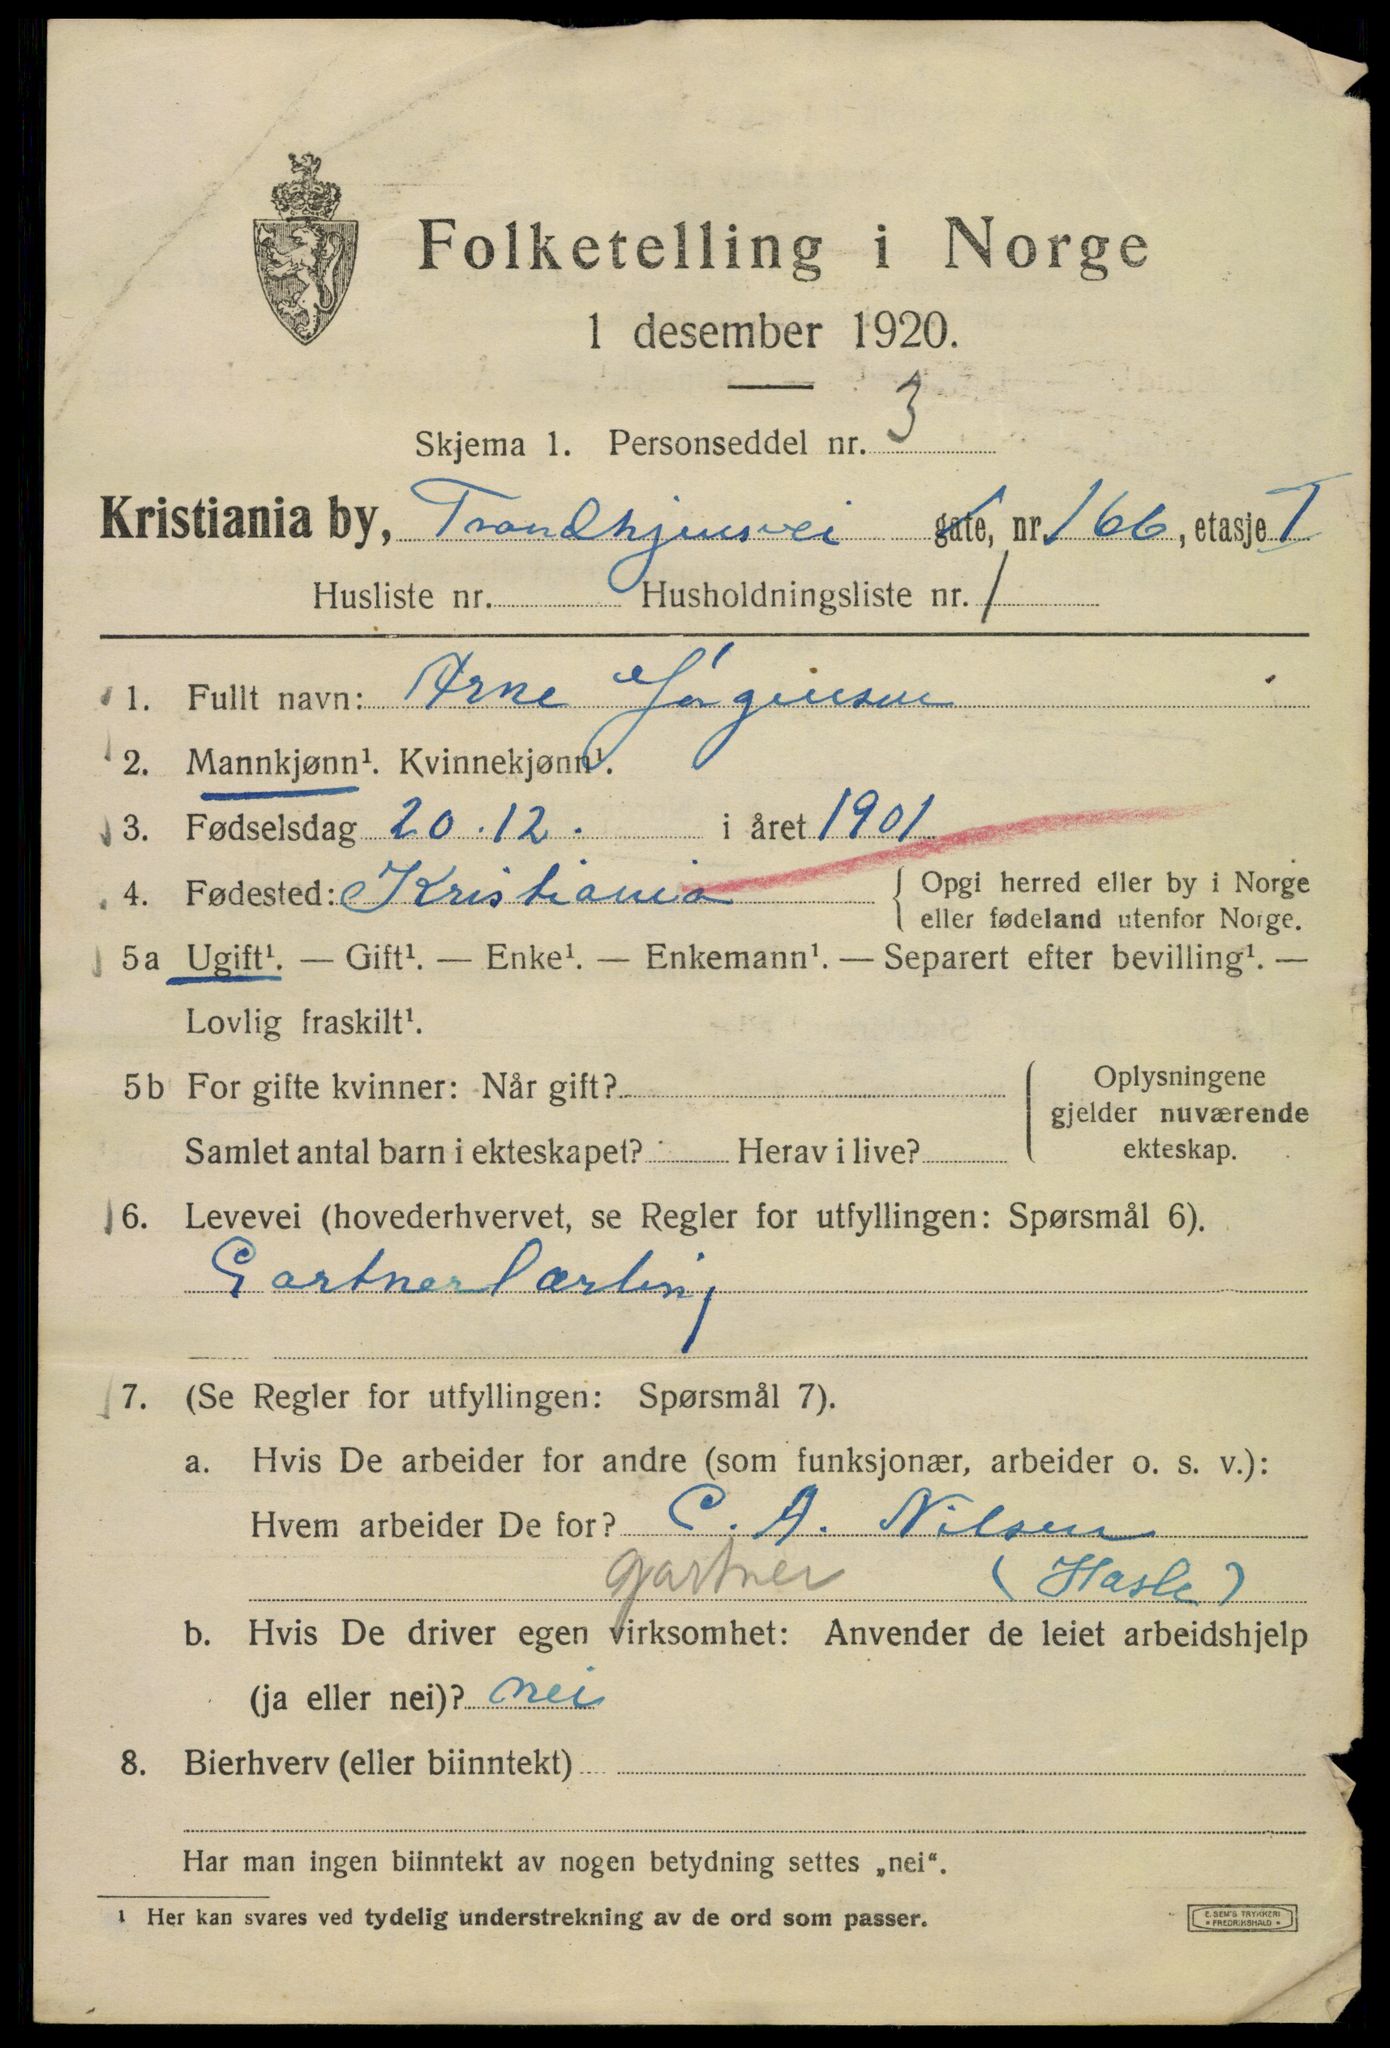 Folketelling i Norge
1 desember 1920.
Skjema 1. Personseddel nr. 3
Kristiania by, Trondhjemsvei gate, nr. 166, etasje I
Husliste nr. Husholdningsliste nr. 1
1. Fullt navn: Arne Jørgensen
2. Mannkjønn¹. Kvinnekjønn¹.
3. Fødselsdag 20.12. i året 1901
4. Fødested: Kristiania { Opgi herred eller by i Norge
eller fødeland utenfor Norge.
5a Ugift¹. — Gift¹. — Enke¹. — Enkemann¹. — Separert efter bevilling¹. —
Lovlig fraskilt¹.
5b For gifte kvinner: Når gift? Oplysningene
gjelder nuværende
Samlet antal barn i ekteskapet? Herav i live? ekteskap.
6. Levevei (hovederhvervet, se Regler for utfyllingen: Spørsmål 6).
Gartnerlærling
7. (Se Regler for utfyllingen: Spørsmål 7).
a. Hvis De arbeider for andre (som funksjonær, arbeider o. s. v.):
Hvem arbeider De for? C. A. Nilsen
gartner (Hasle)
b. Hvis De driver egen virksomhet: Anvender de leiet arbeidshjelp
(ja eller nei)? nei
8. Bierhverv (eller biinntekt)
Har man ingen biinntekt av nogen betydning settes „nei“.
¹ Her kan svares ved tydelig understrekning av de ord som passer.
E. SEM'S TRYKKERI
• FREDRIKSHALD •